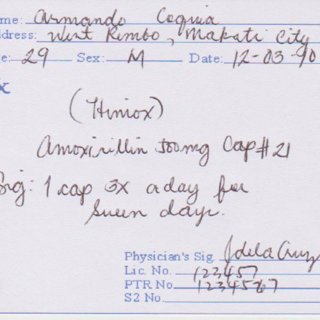 me: Armando Coquia
ddress: West Rembo, Makati City
e: 29 Sex: M Date: 12-03-90
x
(Himox)
Amoxicillin 500mg Cap #21
Sig: 1 cap 3x a day for
seven days.
Physician's Sig. Jdela Cruz
Lic. No. 123457
PTR No 1234567
S2 No.